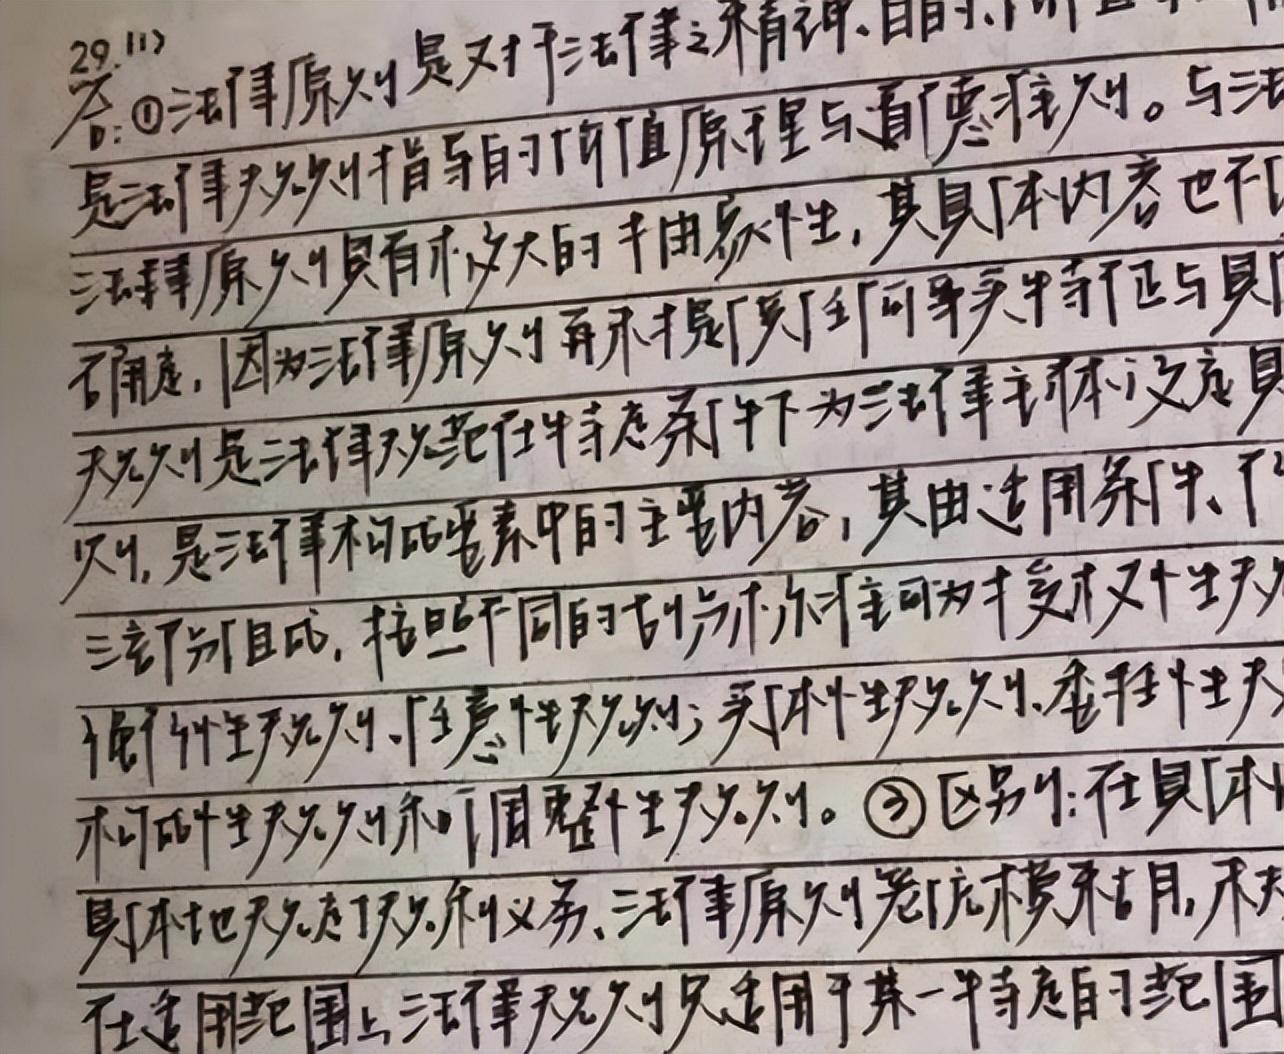 29.(1)
答:①法律原则是对于法律之精神、目的、价值
是法律规则指导的价值原理与道德准则。与法
法律原则具有极大的抽象性,其具体内容也不
确定,因为法律原则再未提供任何事实特征与具
规则是法律规范在特定条件下为法律主体设定具
则,是法律构成要素中的主要内容,其由适用条件、
三部分组成,按照不同的划分标准可为授权性规
强行性规则、任意性规则;实体性规则、委任性规
构成性规则和调整性规则。③区别:在具体
具体地规定了权利义务、法律原则笼统模糊,未
在适用范围上法律规则只适用于某一特定的范围